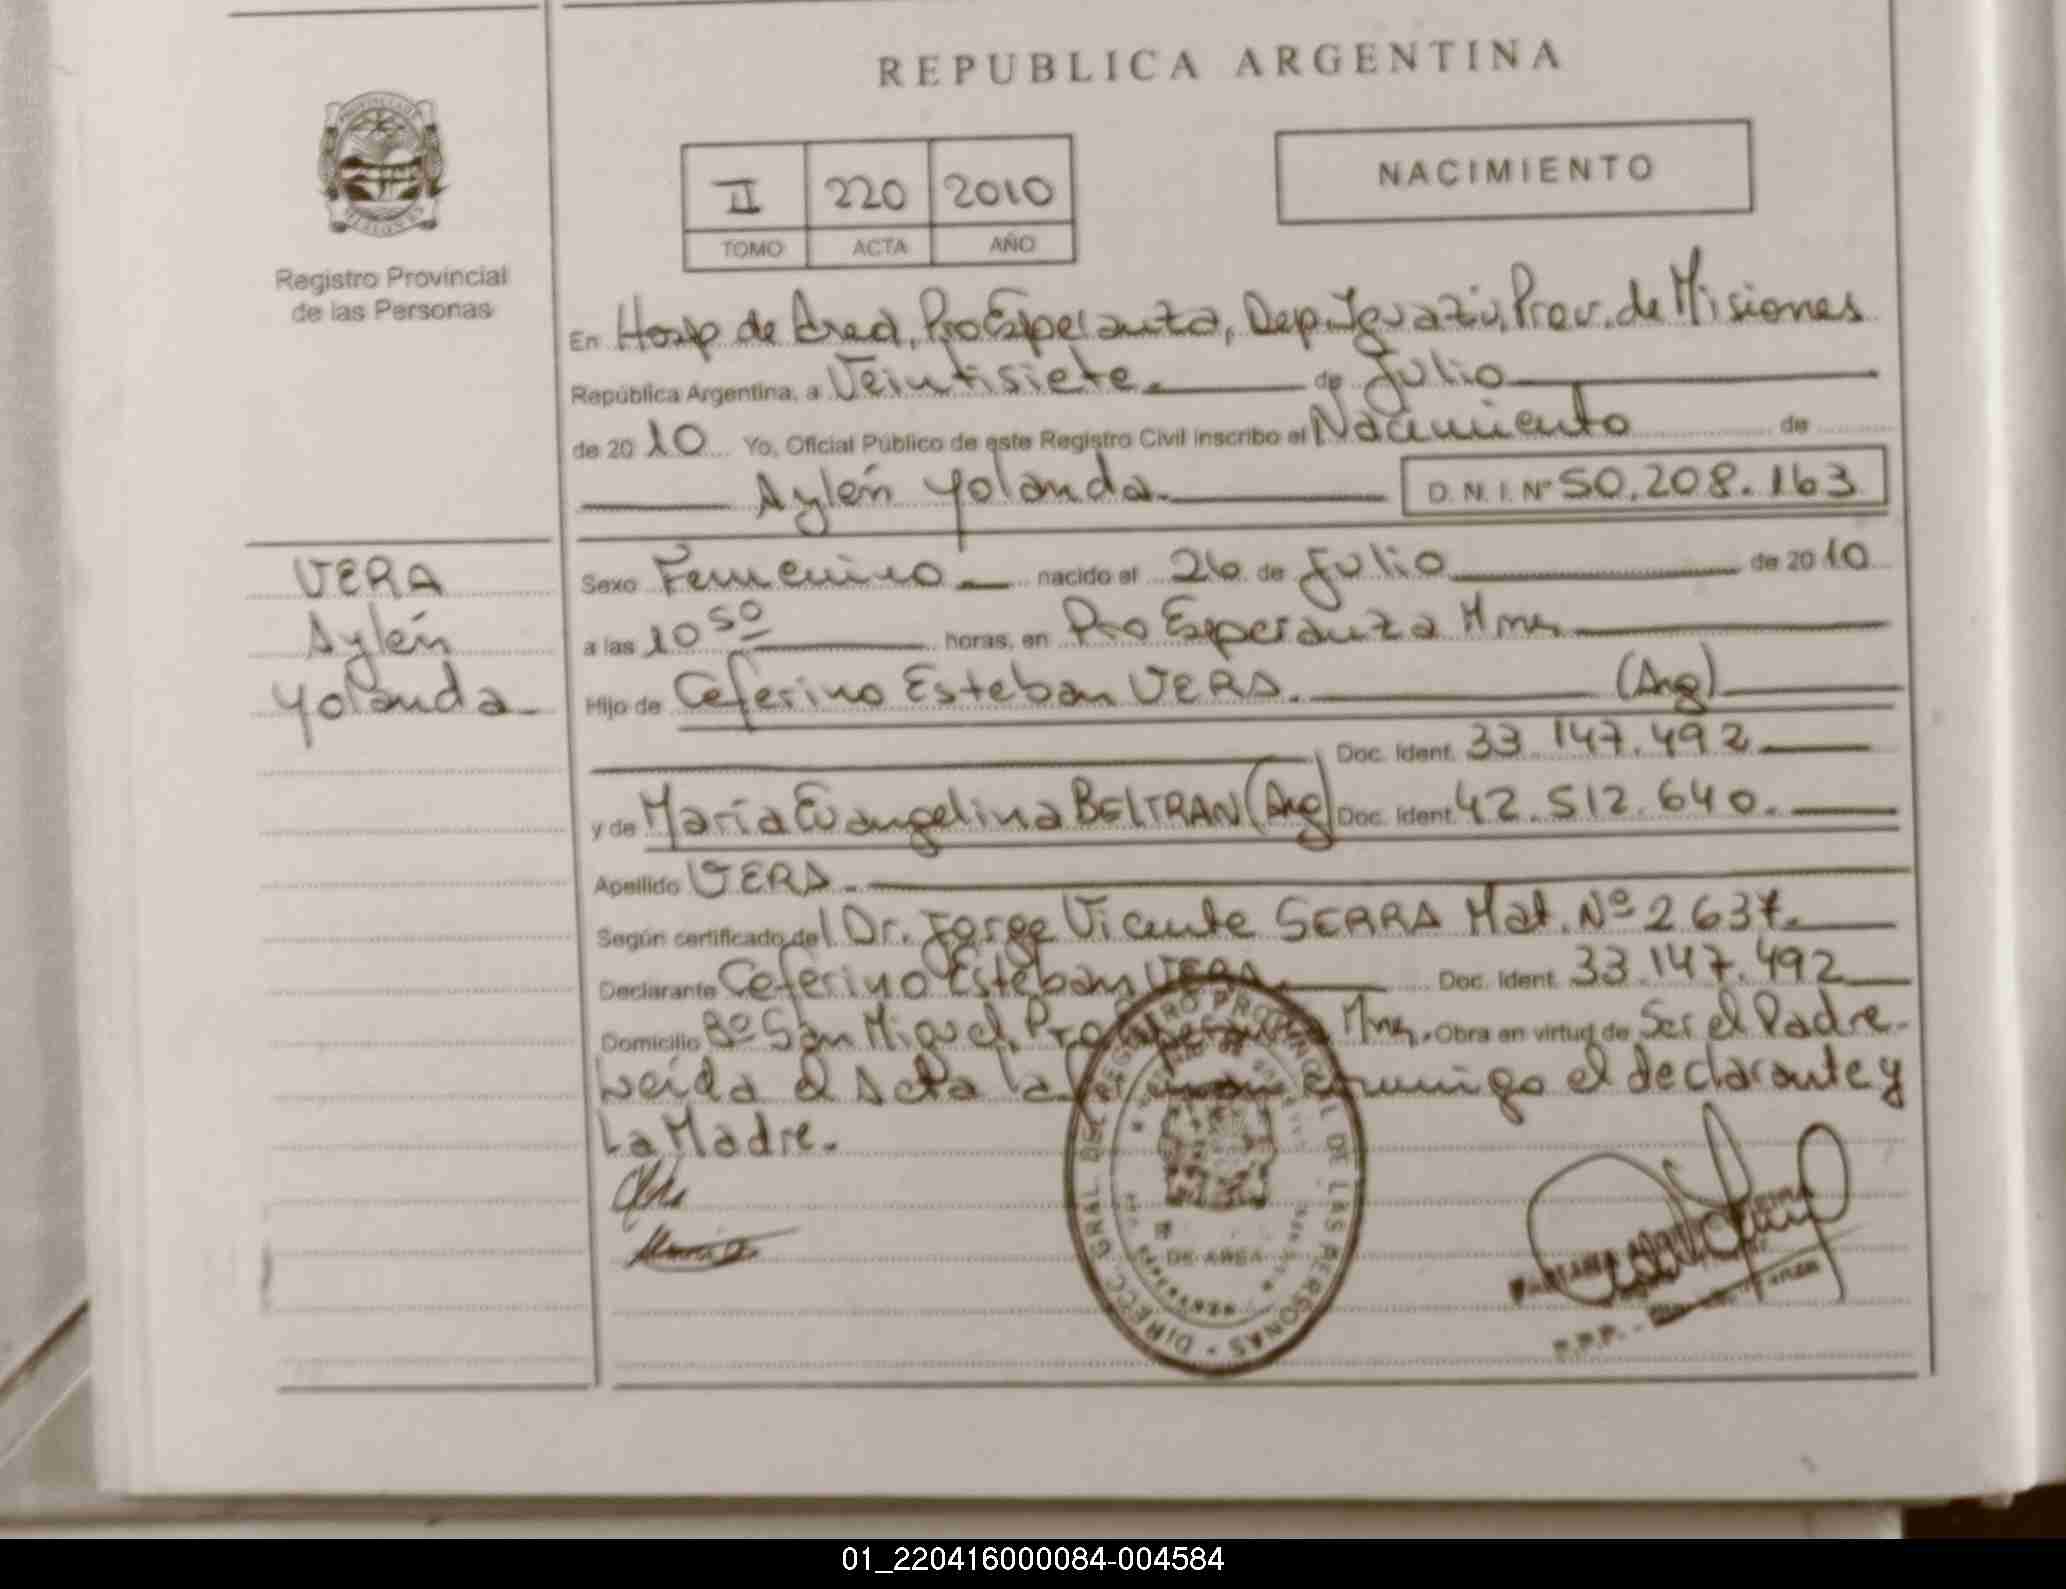 REPUBLICA ARGENTINA
Registro Provincial
de las Personas
II 220 2010
TOMO ACTA AÑO
NACIMIENTO
En Hosp de Area, Pto Esperanza, Dep. Iguazú, Prov. de Misiones
República Argentina, a Veintisiete de Julio
de 2010 Yo, Oficial Público de este Registro Civil inscribo el Nacimiento de
Aylén Yolanda D.N.I. Nº 50.208.163
VERA
Aylén
Yolanda
Sexo Femenino nacido el 26 de Julio de 2010
a las 10 50 horas, en Pto Esperanza Mnes
Hijo de Ceferino Esteban VERA. (Arg)
Doc. Ident. 33.147.492
y de María Evangelina BELTRAN (Arg) Doc. Ident 42.512.640.
Apellido VERA.
Según certificado del Dr. Jorge Vicente SERRA Mat. Nº 2637.
Declarante Ceferino Esteban VERA Doc. Ident. 33.147.492
Domicilio Bº San Miguel, Pto Esperanza Mnes. Obra en virtud de Ser el Padre.
Leída el Acta la firman conmigo el declarante y
La Madre.
DIRECC. GRAL. DEL REGISTRO PROVINCIAL DE LAS PERSONAS
DE AREA
R.P.P. -
01_220416000084-004584